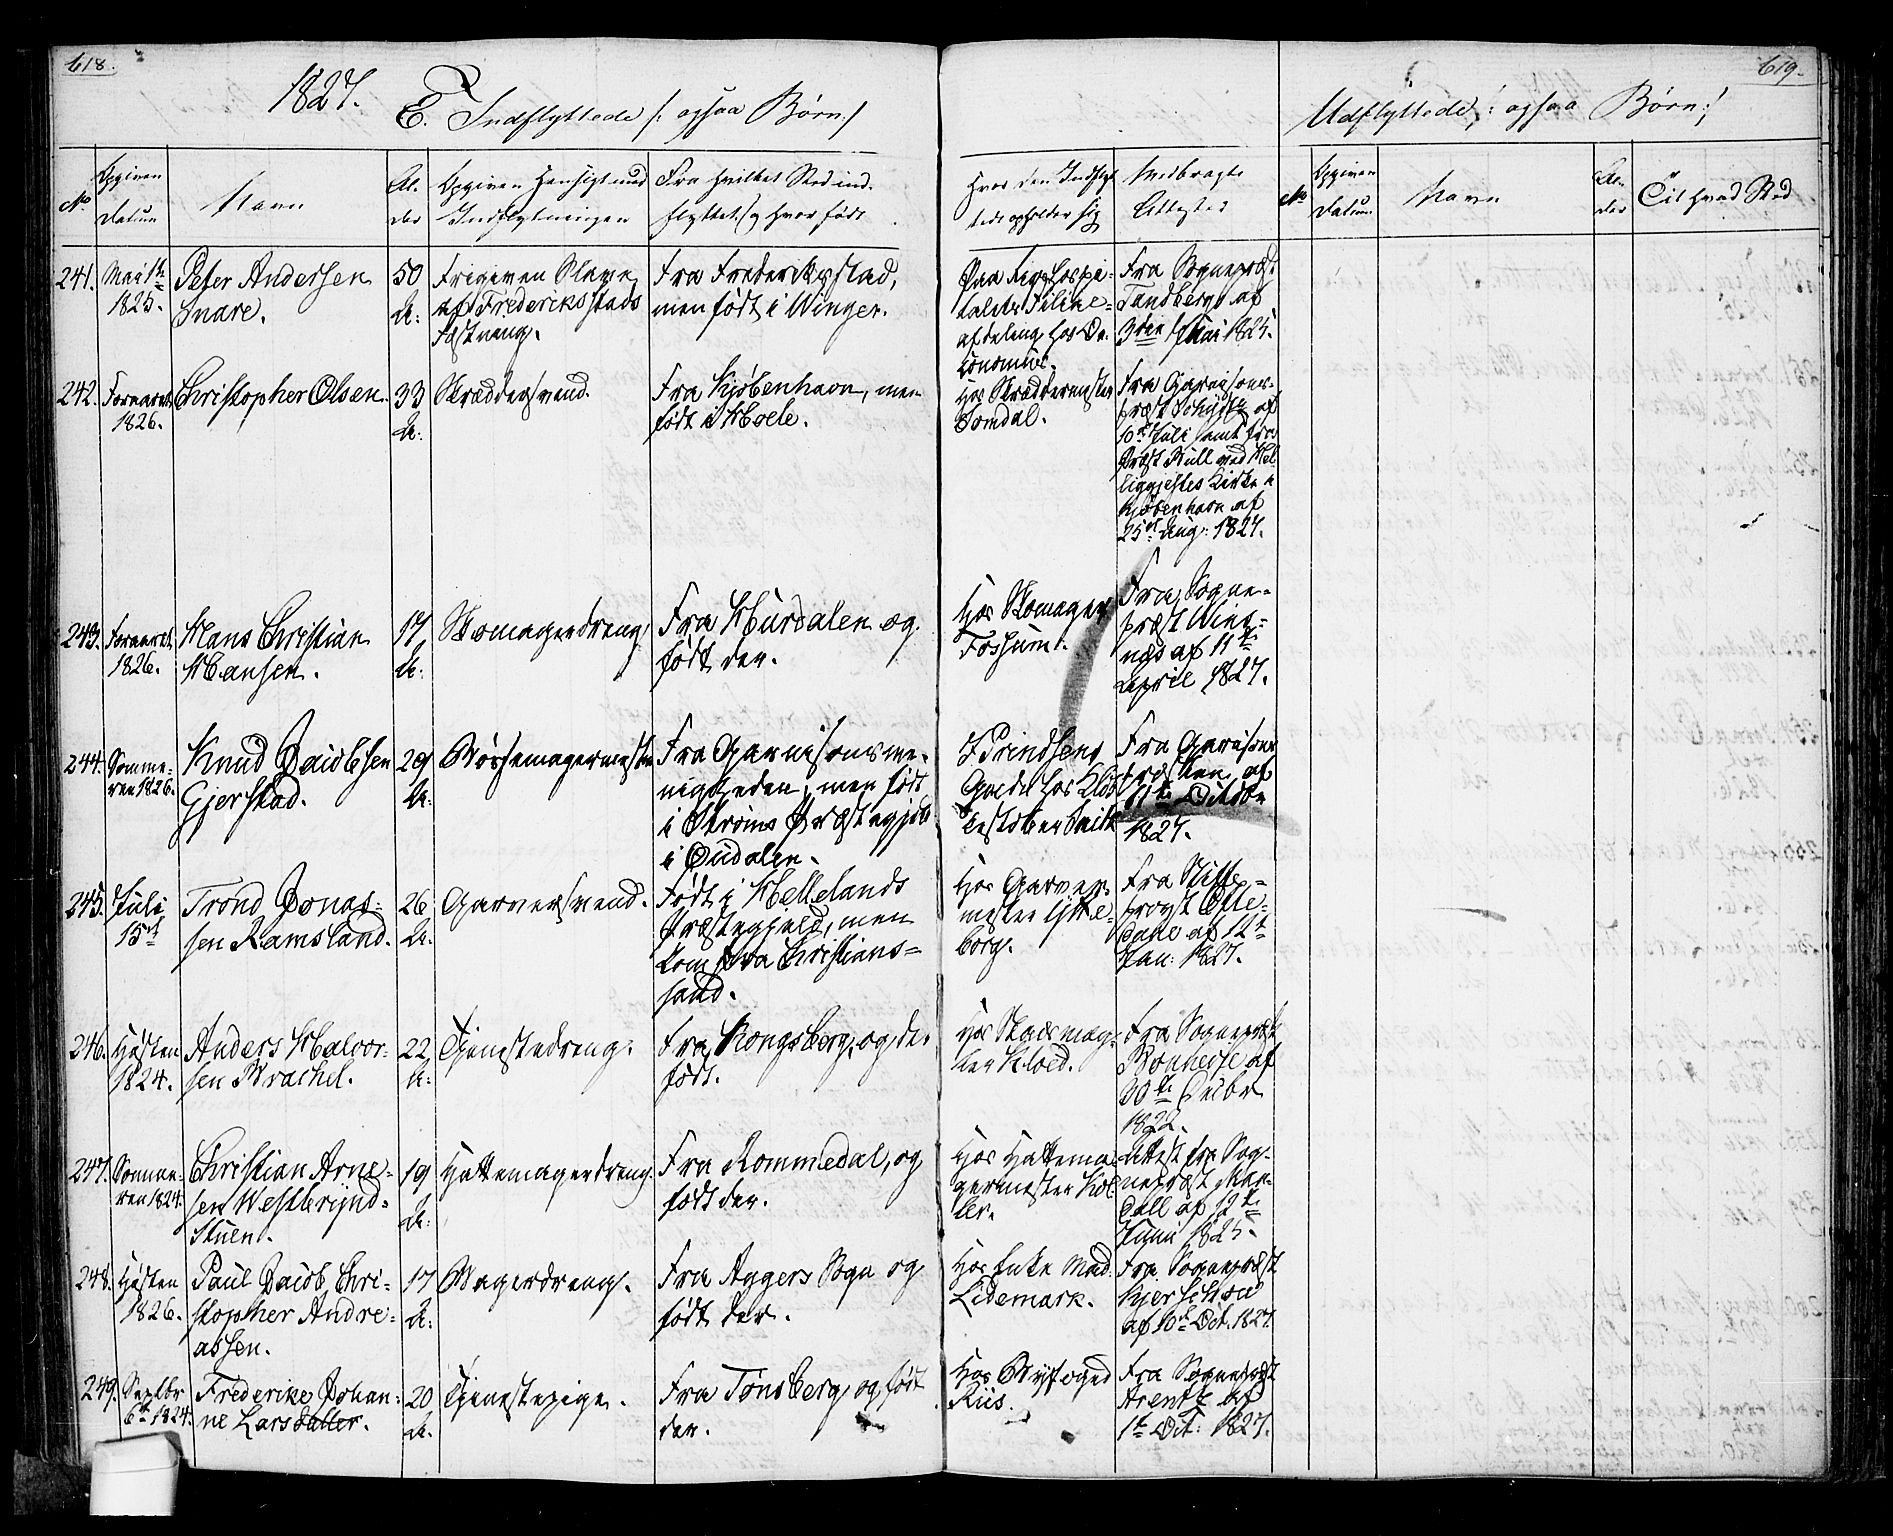 618.
1827.
E. Indflyttede /: ogsaa Børn:/
No
Opgiven Datum
Navn
Al-
der
Opgiven Hensigt med
Indflytningen
Fra hvilket Sted ind-
flyttet og hvor født
Hvor den Indflyt
tede opholder sig
Medbragte
Attester
241.
Mai 1te
1825.
Peter Andersen
Snare.
50
A:
Frigiven Slave
af Frederiksstads
Fæstning.
Fra Frederikstad,
men født i Winger.
Paa Rigshospi-
talets Filiae-
afdeling hos Oe-
konomus.
Fra Sognepræst
Tandberg af
3die Mai 1825.
242.
Foraaret
1826.
Christopher Olsen.
33
A:
Skrædersvend.
Fra Kjøbenhavn, men
født i Hoele.
Hos Skrædermester
Somdal.
Fra Garnisons-
præst
10de Juli samt fra
Præst Bull ved Hel-
liggjestes Kirke i
Kjøbenhavn af
25de Aug: 1827.
243.
Foraaret
1826.
Hans Christian
Hansen.
17
A:
Skomagerdreng
Fra Hurdalen og
født der.
Hos Skomager
Fossum.
Fra Sogne-
præst Wins-
nes af 11te
April 1827.
244.
Somme-
ren 1826.
Knud Jacobsen
Gjerstad.
29
A:
Børsemagermester
Fra Garnisonsme-
nigheden, men født
i Strøms Præstegjeld
i Oudalen.
I Prindsens
Gaarde hos
Fra Garnisons
præsten af
11te Octobr
1827.
245.
Juli
15de
Trond Jonas-
sen Ramsland.
26
A:
Garversvend.
Født i Hellelands
Præstegjeld, men
kom fra Christians-
sand.
Hos Garver-
mester Lytte-
borg.
Fra Stifts-
provst
af 12te
Jan: 1827.
246.
Høsten
1824.
Anders Halvor-
sen Brachel.
22
A:
Tjenestedreng.
Fra Kongsberg, og der
født.
Hos Stadsmæg-
ler Kloed.
Fra Sognepræst
af
30te Decbr
1822.
247.
Somme-
ren 1824.
Christian Arne-
sen Westbrynd-
stuen.
19
A:
Hattemagerdreng.
Fra Rommedal, og
født der.
Hos Hattema-
germester Køl-
ler.
Attest fra Sog-
nepræst Man-
dall af 12te
Juni 1825.
248.
Høsten
1826.
Paul Jacob Chri-
stopher Andre-
assen.
17
A:
Bagerdreng.
Fra Aggers Sogn og
født der.
Hos Enke Mad.
Lidemark.
Fra Sognepræst
Kjerschow
af 10de Oct. 1827.
249.
Septbr
6te 1824.
Frederike Johan-
ne Larsdatter.
20
A:
Tjenestepige.
Fra Tønsberg og født
der.
Hos Byfoged
Riis.
Fra Sognepræst
Arentz af
1te Oct: 1827.
619.
Udflyttede /: ogsaa Børn:/
No
Opgiven
Datum
Navn
Al-
der
Til hvad Sted